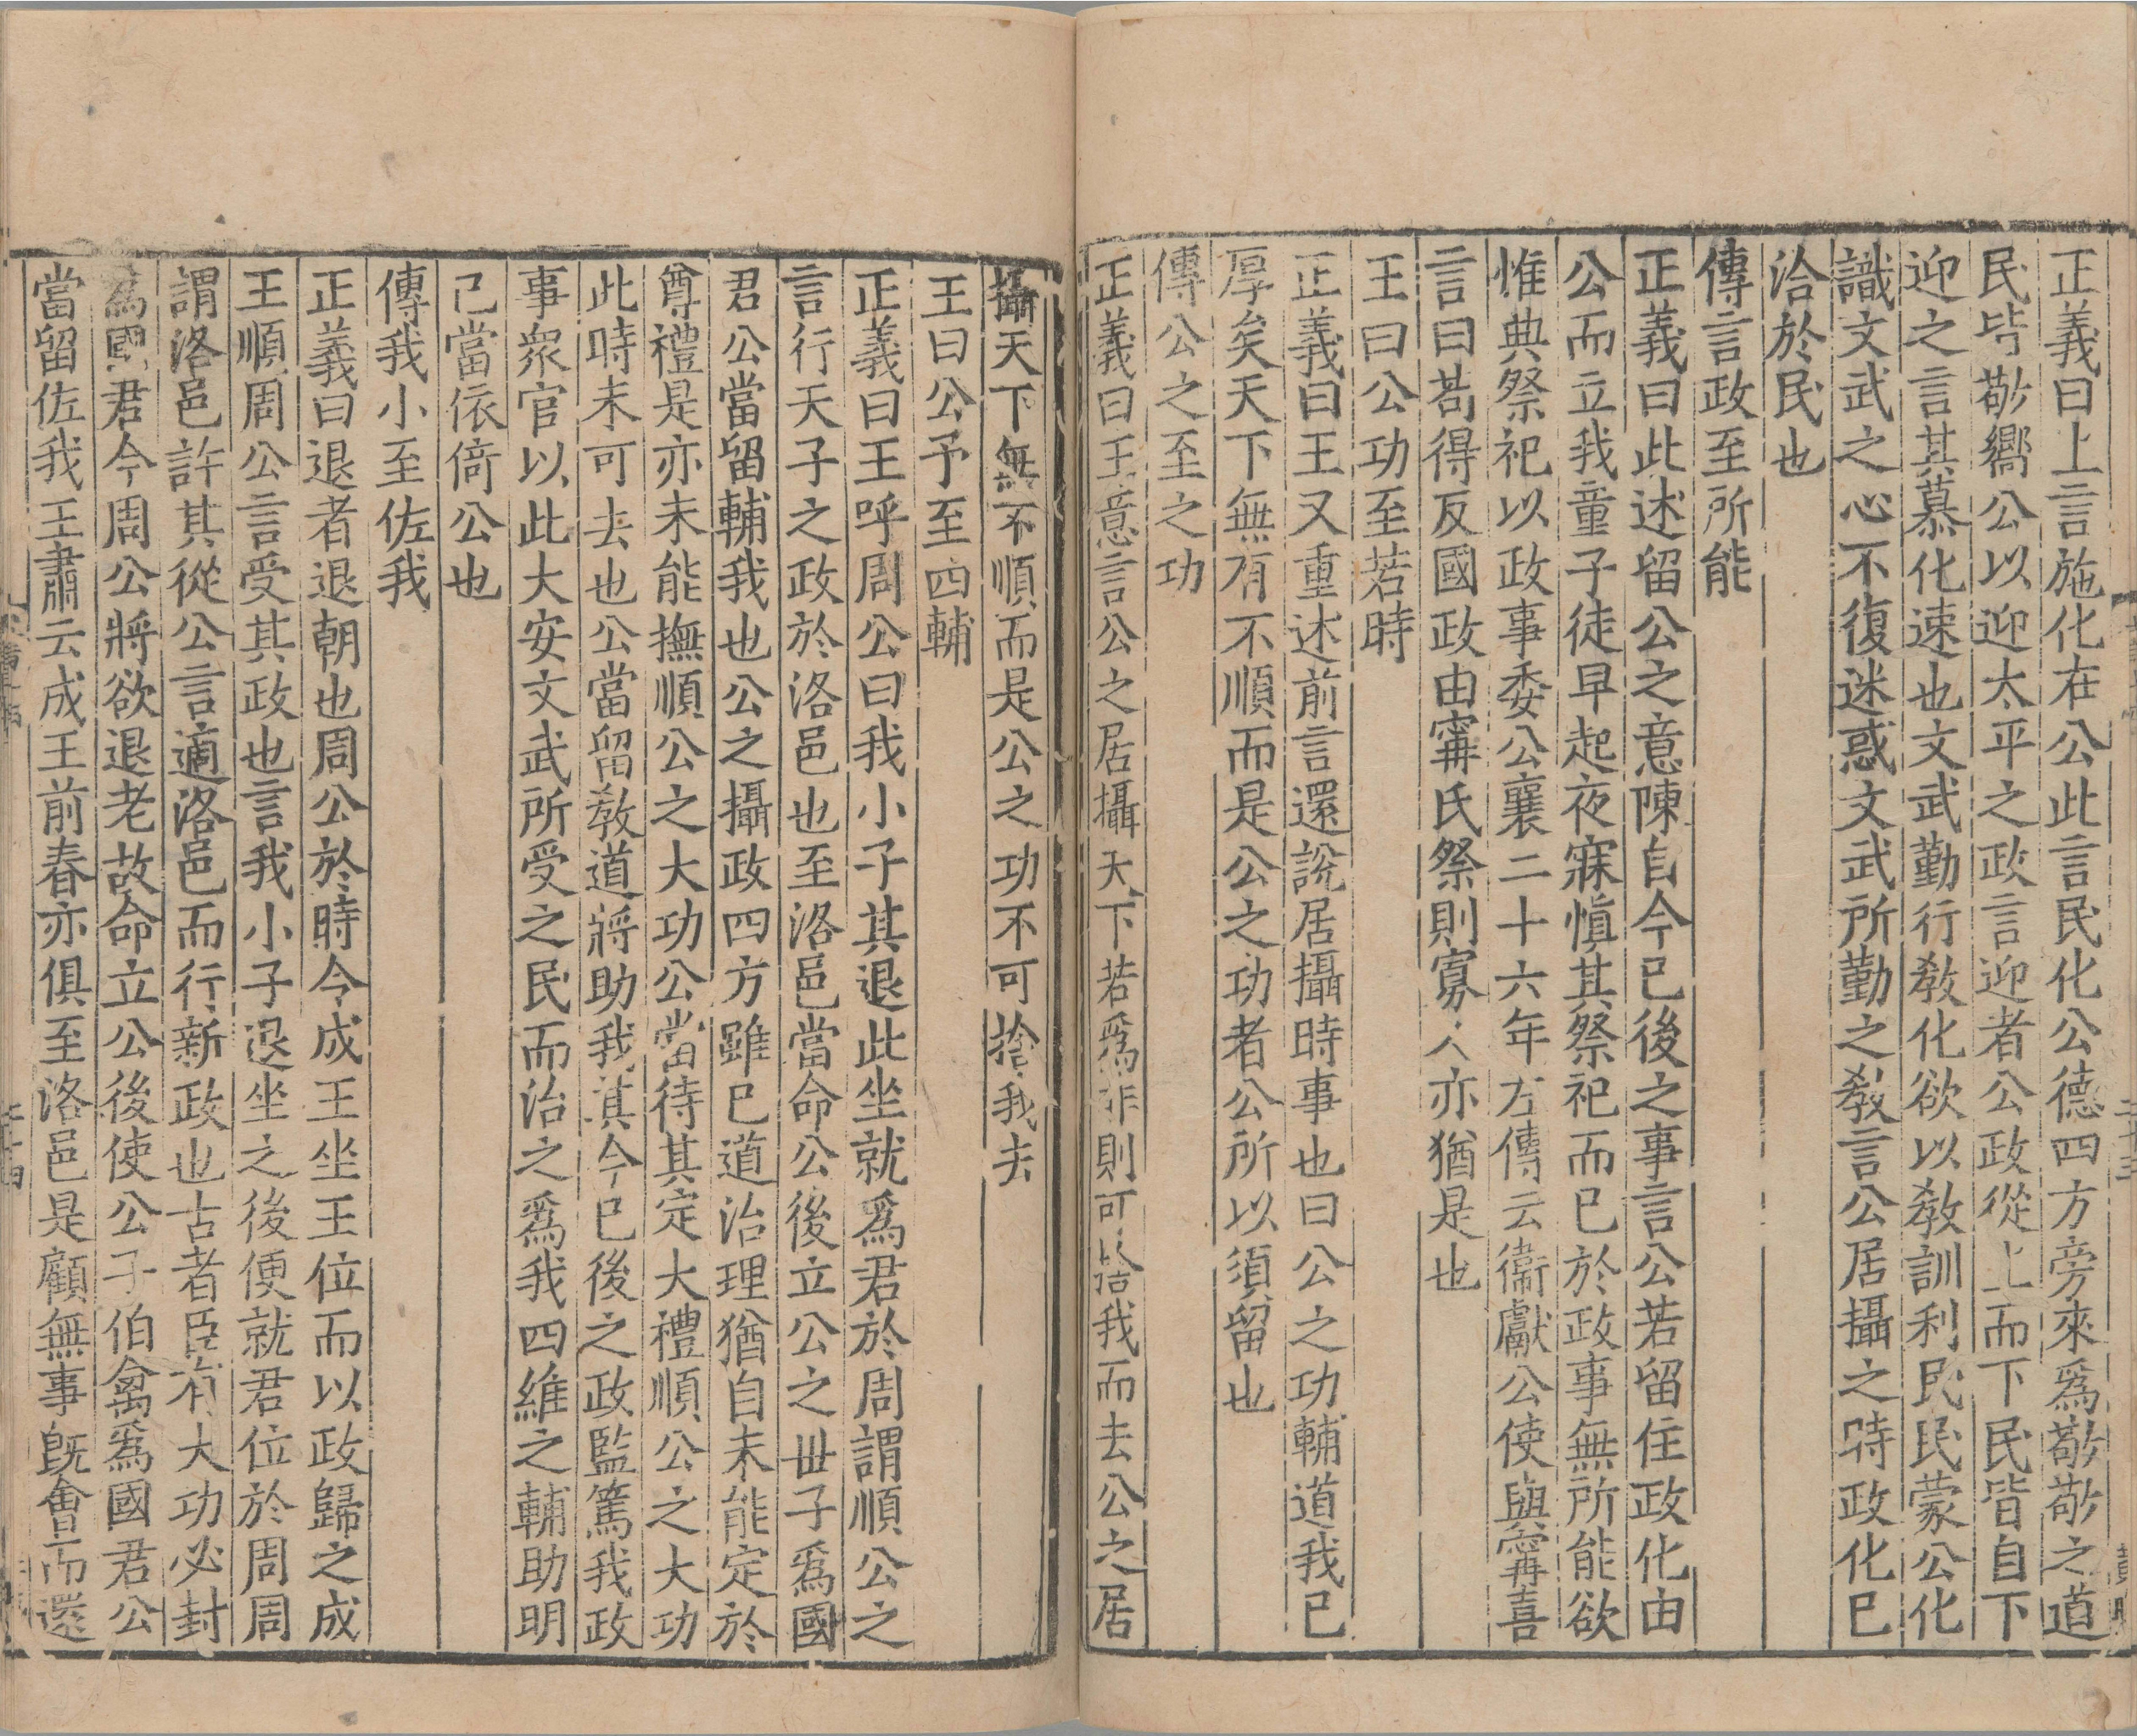 正義曰上言施化在公此言民化公德四方旁來爲敬敬之道
民皆敬嚮公以迎太平之政言迎者公政從上而下民皆自下
迎之言其慕化速也文武勤行敎化欲以敎訓利民民蒙公化
識文武之心不復迷惑文武所勤之敎言公居攝之時政化已
洽於民也
傳言政至所能
正義曰此述留公之意陳自今已後之事言公若留住政化由
公而立我童子徒早起夜寐愼其祭祀而已於政事無所能欲
惟典祭祀以政事委公襄二十六年左傳云衞獻公使與甯喜
言曰苟得反國政由甯氏祭則寡人亦猶是也
王曰公功至若時
正義曰王又重述前言還說居攝時事也曰公之功輔道我已
厚矣天下無有不順而是公之功者公所以須留也
傳公之至之功
正義曰王意言公之居攝天下若爲非則可以捨我而去公之居
攝天下無不順而是公之功不可捨我去
王曰公予至四輔
正義曰王呼周公曰我小子其退此坐就爲君於周謂順公之
言行天子之政於洛邑也至洛邑當命公後立公之丗子爲國
君公當留輔我也公之攝政四方雖已道治理猶自未能定於
尊禮是亦未能撫順公之大功公當待其定大禮順公之大功
此時未可去也公當留敎道將助我其今已後之政監篤我政
事衆官以此大安文武所受之民而治之爲我四維之輔助明
己當依倚公也
傳我小至佐我
正義曰退者退朝也周公於時令成王坐王位而以政歸之成
王順周公言受其政也言我小子退坐之後便就君位於周周
謂洛邑許其從公言適洛邑而行新政也古者臣有大功必封
爲國君今周公將欲退老故命立公後使公子伯禽爲國君公
當留佐我王肅云成王前春亦俱至洛邑是顧無事旣會而還
二十三
二十四